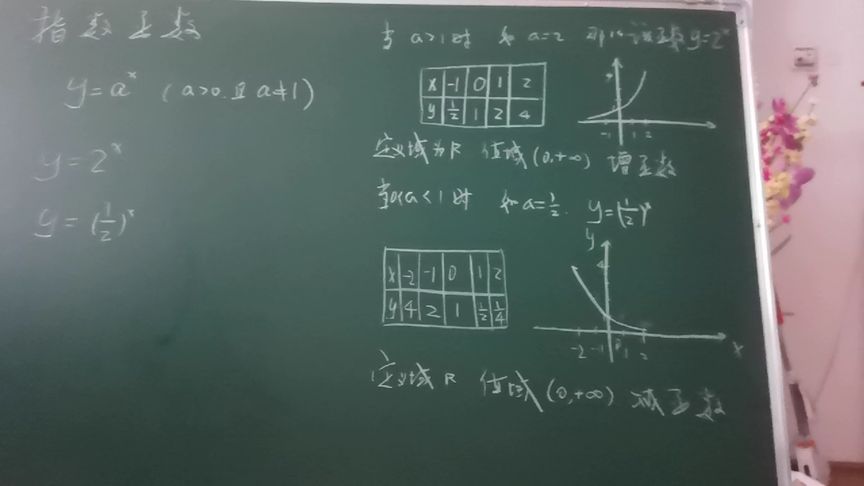 指数函数
y=aˣ (a>0且a≠1)
y=2ˣ
y=(1/2)ˣ
当a>1时 如a=2 那么该函数y=2ˣ
x -1 0 1 2
y 1/2 1 2 4
-1 1 2
定义域为R 值域(0,+∞) 增函数
当0<a<1时 如a=1/2. y=(1/2)ˣ
y
4
x -2 -1 0 1 2
y 4 2 1 1/2 1/4
-2 -1 0 1 2 x
定义域R 值域(0,+∞) 减函数